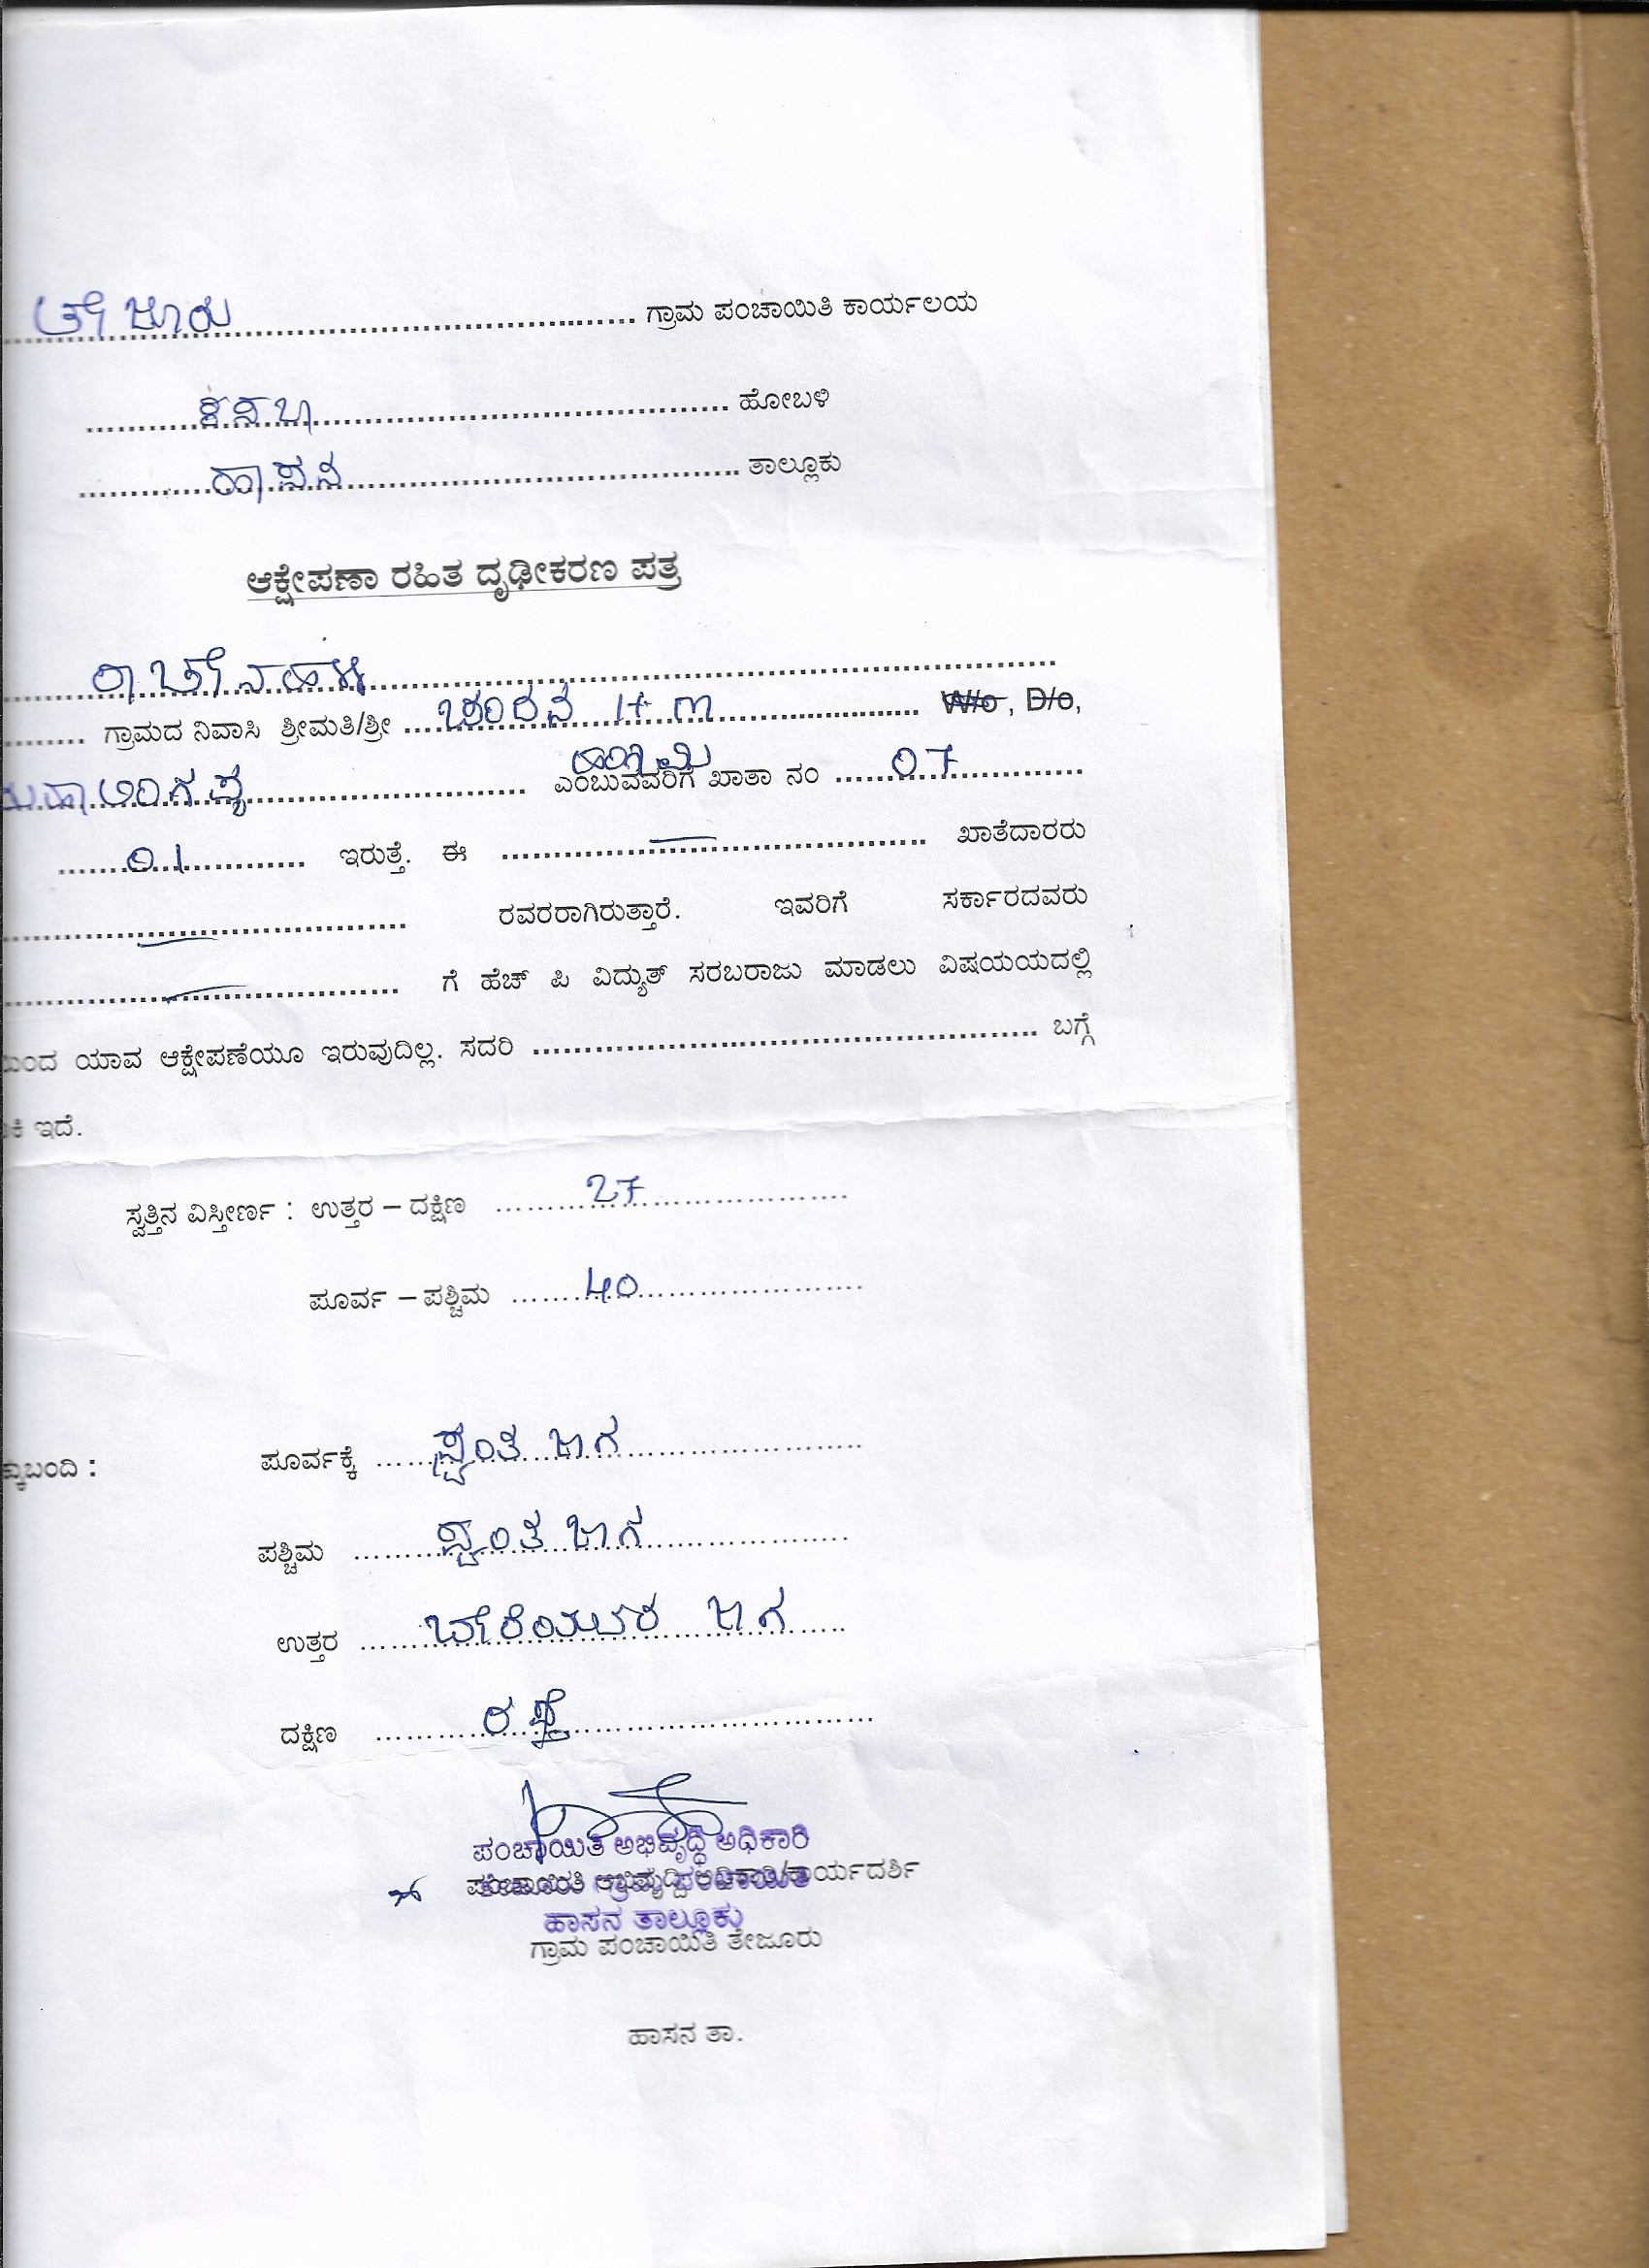 ತೇಜೂರು ........ ಗ್ರಾಮ ಪಂಚಾಯಿತಿ ಕಾರ್ಯಲಯ
........ ಕಸಬಾ ........ ಹೋಬಳಿ
........ ಹಾಸನ ........ ತಾಲ್ಲೂಕು
ಆಕ್ಷೇಪಣಾ ರಹಿತ ದೃಢೀಕರಣ ಪತ್ರ
ರಾಚೇನಹಳ್ಳಿ
........ ಗ್ರಾಮದ ನಿವಾಸಿ ಶ್ರೀಮತಿ/ಶ್ರೀ ........ W/o , D/o,
ಎಂಬುವವರಿಗೆ ಖಾತಾ ನಂ ........ 07 ........
........ 01 ........ ಇರುತ್ತೆ. ಈ ........ ಖಾತೆದಾರರು
........ ರವರರಾಗಿರುತ್ತಾರೆ. ಇವರಿಗೆ ಸರ್ಕಾರದವರು
........ ಗೆ ಹೆಚ್ ಪಿ ವಿದ್ಯುತ್ ಸರಬರಾಜು ಮಾಡಲು ವಿಷಯಯದಲ್ಲಿ
ಯಾವ ಆಕ್ಷೇಪಣೆಯೂ ಇರುವುದಿಲ್ಲ. ಸದರಿ ........ ಬಗ್ಗೆ
ಇದೆ.
ಸ್ವತ್ತಿನ ವಿಸ್ತೀರ್ಣ : ಉತ್ತರ – ದಕ್ಷಿಣ ........ 27 ........
ಪೂರ್ವ – ಪಶ್ಚಿಮ ........ 40 ........
ಕ್ಕುಬಂದಿ : ಪೂರ್ವಕ್ಕೆ ........ ಸ್ವಂತ ಜಾಗ ........
ಪಶ್ಚಿಮ ........ ಸ್ವಂತ ಜಾಗ ........
ಉತ್ತರ ........ ಬೇರೆಯವರ ಜಾಗ ........
ದಕ್ಷಿಣ ........ ರಸ್ತೆ ........
ಪಂಚಾಯಿತಿ ಅಭಿವೃದ್ಧಿ ಅಧಿಕಾರಿ
ಪಂಚಾಯಿತಿ ಅಭಿವೃದ್ಧಿ ಅಧಿಕಾರಿ/ಕಾರ್ಯದರ್ಶಿ
ಹಾಸನ ತಾಲ್ಲೂಕು
ಗ್ರಾಮ ಪಂಚಾಯಿತಿ ತೇಜೂರು
ಹಾಸನ ತಾ.